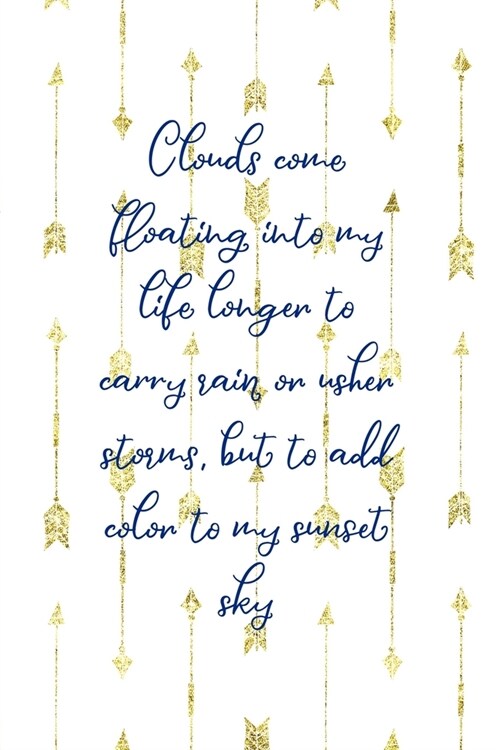 Clouds come
floating into my
life longer to
carry rain or usher
storms, but to add
color to my sunset
sky